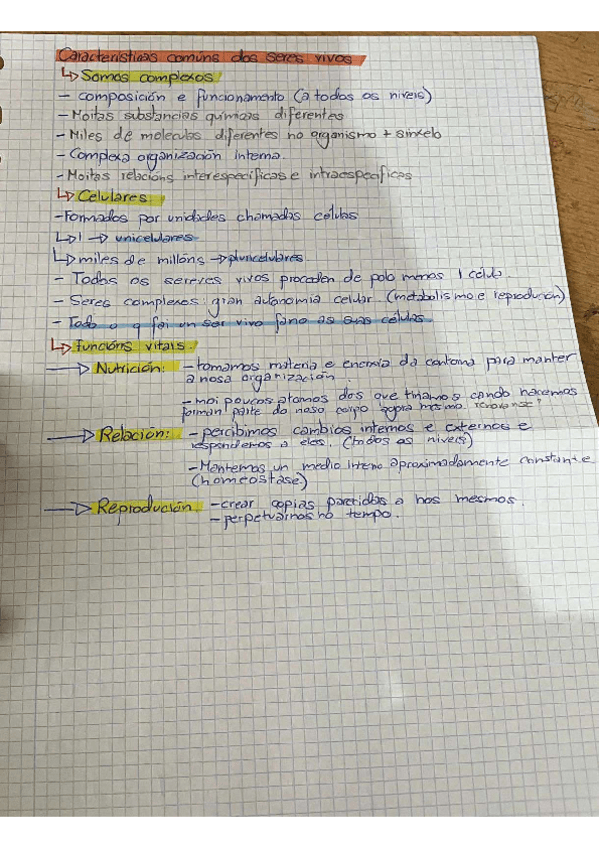 Características comúns dos seres vivos
↳ Somos complexos
- composición e funcionamento (a todos os niveis)
- Moitas substancias químicas diferentes
- Miles de moleculas diferentes no organismo + sinxelo
- Complexa organización interna.
- Moitas relacións interespecificas e intraespecificas
↳ Celulares:
- Formados por unidades chamadas células
↳ 1 → unicelulares
↳ miles de millóns → pluricelulares.
- Todos os sereres vivos proceden de polo menos 1 célula.
- Seres complexos: gran autonomía celular (metabolismo e reprodución)
- Todo o q fai un ser vivo fano as suas células.
↳ funcións vitais.
→ Nutrición: - tomamos materia e enerxia da contorna para manter
a nosa organización.
- moi poucos atomos dos que tiñamos cando nacemos
forman parte do noso corpo agora mesmo.
→ Relación: - percibimos cambios internos e externos e
respondemos a eles. (todos as niveis)
- Mantemos un medio interno aproximadamente constante
(homeostase)
→ Reprodución - crear copias parecidas a nos mesmos.
- perpetuarnos no tempo.